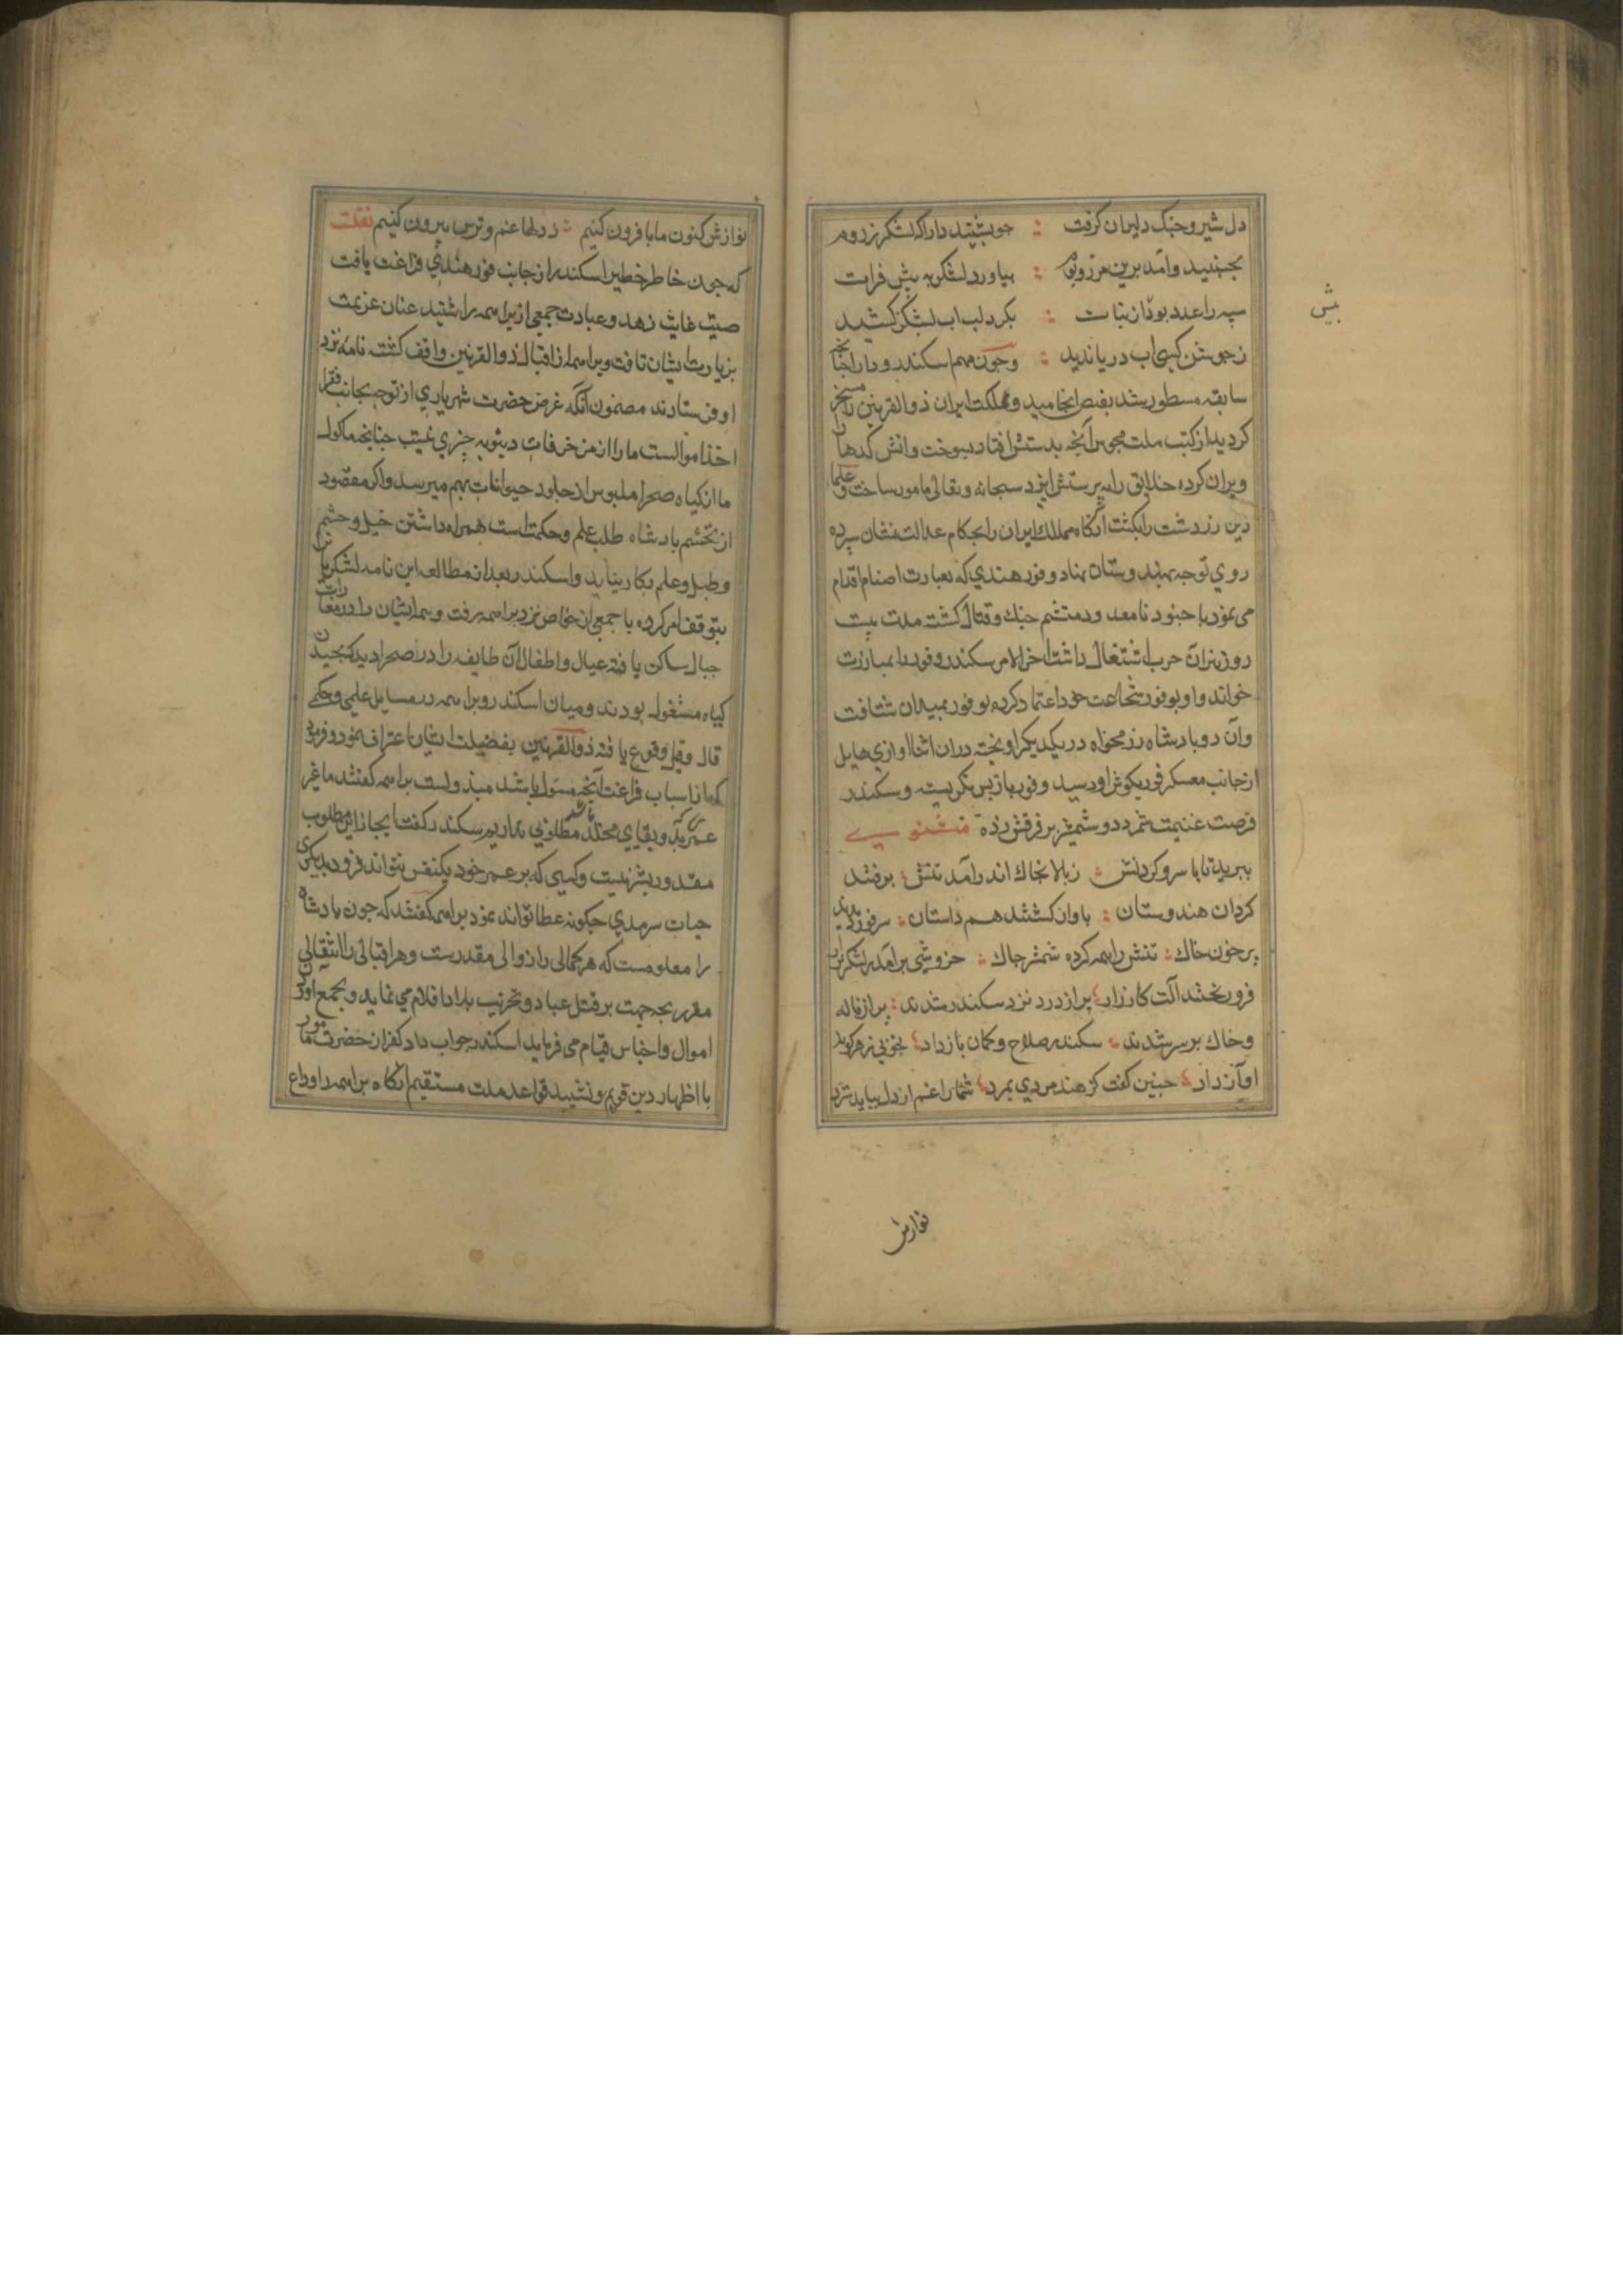 دل شیر و جنک دلیران کرفت : جو بشنید دارا که لشکر ز روم
بجنبید و آمد برین مرز و بوم : بیاورد لشکر به پیش فرات
سپه را عدد بود از نبات : بکرد لب اب لشکر کشید
ز جوشن کسی اب دریا ندید : و جون مهم اسکندر و دارا جنانجه
سابقه مسطور شد بفیصل انجامید و مملکت ایران ذو القرنین را مسخر
کردید از کتب ملت مجوس آنجه بدستش افتاد بسوخت و اتش کدها را
ویران کرده خلایق را به پرستش ایزد سبحانه و تعالی مامور ساخت و علما
دین زردشت را بکشت آنکاه ممالک ایران را بحکام عدالت نشان سپرده
روی توجه بهندوستان نهاد و فور هندی که بعبارت اصنام اقدام
می نمود با جنود نامعدود متشمر جنک و قتال کشته مدت بیست
روز نیران حرب اشتغال داشت اخر الامر سکندر فور را بمبارزت
خواند و او بوفور شجاعت خود اعتماد کرده بوفور بمیدان شتافت
وآن دو بادشاه رزمخواه در یکدیکر اویخته دران اثنا اوازی هایل
از جانب معسکر فور بکوش او رسید و فور باز پس نکریست و سکندر
فرصت غنیمت شمرد دو شمشیر بر فرقش زده مثنوی
ببرید تا با سر و کردنش : ز بالا بخاک اندر آمد تنش : برفتند
کردان هندوستان : باوان کشتند هم داستان : سر فور دیدند
پر خون خاک : تنش را همه کرده شمشیر جاک : خروشی برآمد ز لشکر بزار
فرو ریختند آلت کارزار : پر از درد نزد سکندر شدند : پر از ناله
و خاک بر سر شدند : سکندر صلاح و کمان باز داد : بخوبی ز هر کونه
آواز داد : جنین کفت کز هند مردی بمرد : شما را غم از دل بباید سترد
بیش
نوازش
نوازش کنون ما با فزون کنیم : ز دلها غم و ترس بیرون کنیم نقلست
که جون خاطر خطیر اسکندر از جانب فور هندی فراغت یافت
صیت غایت زهد و عبادت جمعی از براهمه را شنید عنان عزیمت
بزیارت ایشان تافت و براهمه از اقبال ذو القرنین واقف کشته نامه نزد
او فرستادند مضمون آنکه غرض حضرت شهریاری از توجه بجانب فقرا
اخذ اموالست ما را از مزخرفات دنیویه جیزی نیست جنانجه ماکول
ما از کیاه صحرا و ملبوس از جلود حیوانات بهم میرسد و اکر مقصود
از تجشم بادشاه طلب علم و حکمت است همراه داشتن خیل و حشم
و طبل و علم بکار نیاید و اسکندر بعد از مطالعه این نامه لشکریان را
بتوقف امر کرده با جمعی از خواص نزد براهمه رفت و همه ایشان را در مغارات
جبال ساکن یافته عیال و اطفال آن طایفه را در صحرا دید که بجیدن
کیاه مشغول بودند و میان اسکندر و براهمه در مسایل علمی و حکمی
قال و قیل وقوع یافته ذو القرنین بفضیلت ایشان اعتراف نمود و فرمود
که از اسباب فراغت آنجه مسول باشد مبذولست براهمه کفتند ما غیر
عمر ابد و بقای مخلد مطلوبی نداریم سکندر کفت ایجاز این مطلوب
مقدور بشر نیست و کسی که بر عمر خود یکنفس نتواند فزود بدیکری
حیات سرمدی جکونه عطا تواند نمود براهمه کفتند که جون بادشاه
را معلومست که هر کمالی را زوالی مقدرست و هر اقبالی را انتقالی
مقرر بجه جهت بر قتل عباد و تخریب بلاد اقدام می نماید و بجمع آوردن
اموال و اجناس قیام می فرماید اسکندر جواب داد که از حضرت مامور
با اظهار دین قویم و تشیید قواعد ملت مستقیم انکاه براهمه را وداع